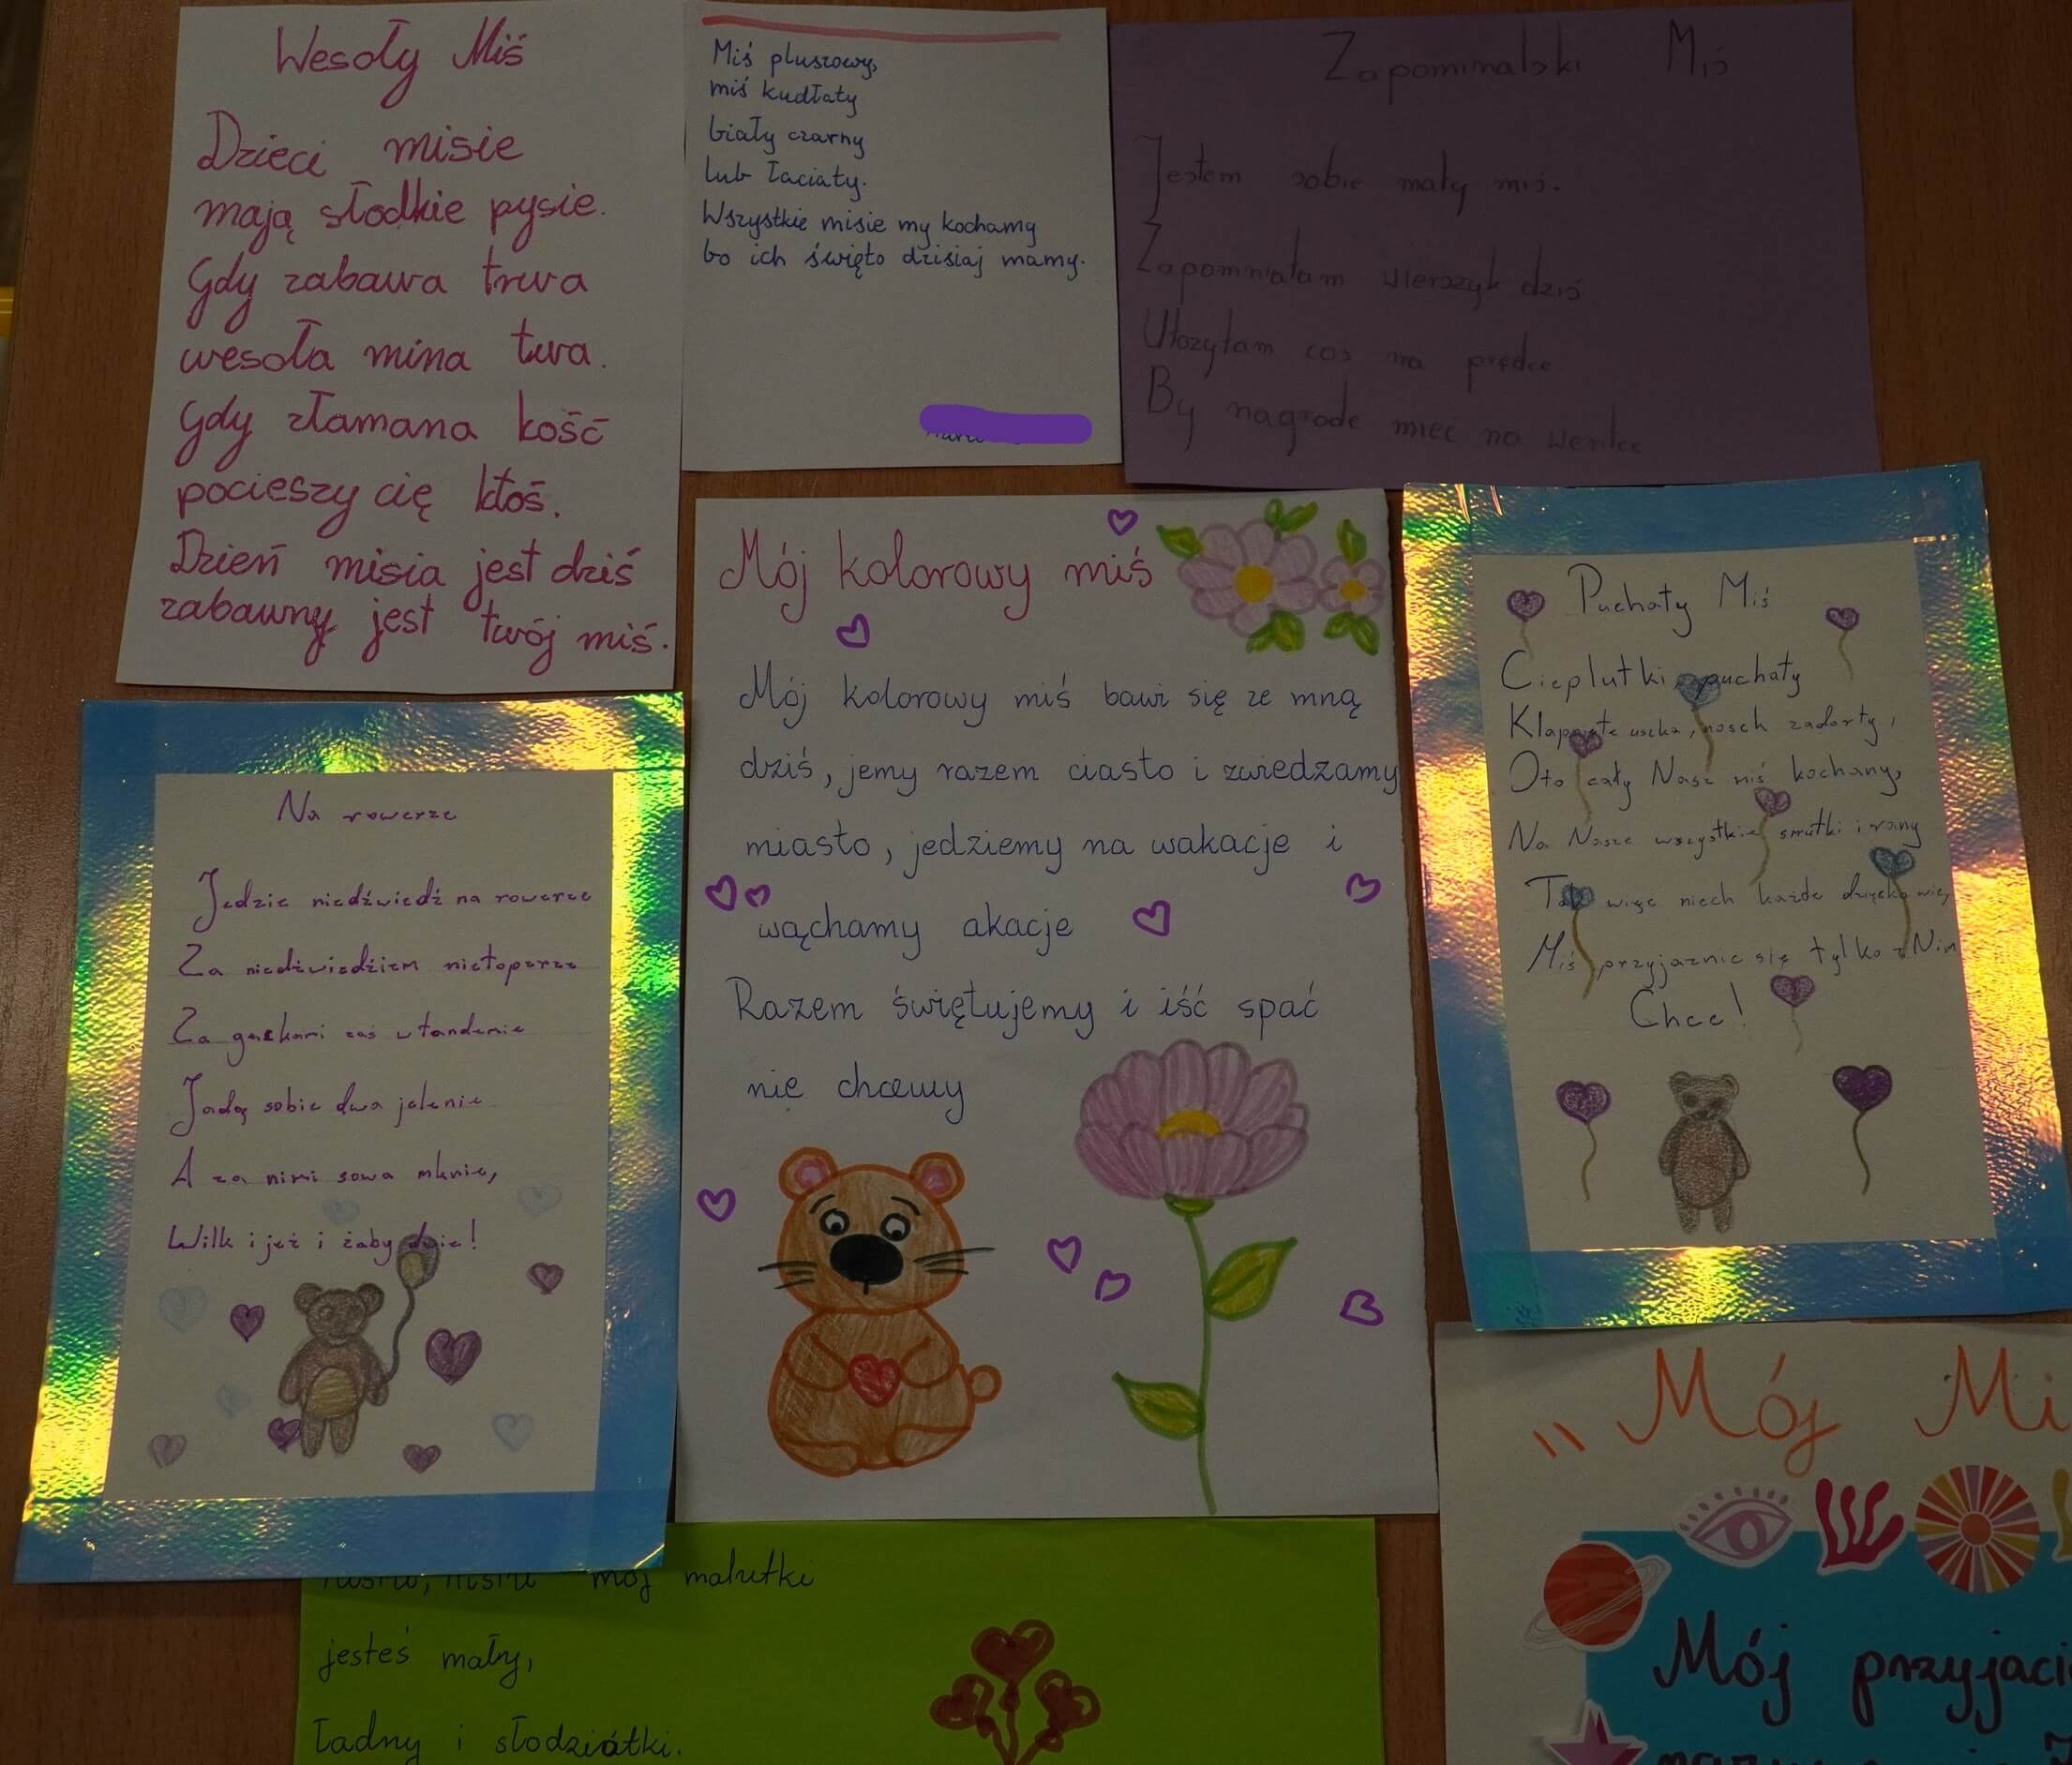 Wesoły Miś
Dzieci misie
mają słodkie pysie.
Gdy zabawa trwa
wesoła mina twa.
Gdy złamana kość
pocieszy cię ktoś.
Dzień misia jest dziś
zabawny jest twój miś.
Miś pluszowy,
miś kudłaty
biały czarny
lub łaciaty.
Wszystkie misie my kochamy
bo ich święto dzisiaj mamy.
Zapominalski Miś
Jestem sobie mały miś.
Zapomniałam wierszyk dziś
Ułożyłam coś na prędce
By nagrode miec na wentce
Na rowerze
Jedzie niedźwiedź na rowerze
Za niedźwiedziem nietoperze
Za gackami zaś w tandemie
Jadą sobie dwa jelenie
A za nimi sowa mknie,
Wilk i jeż i żaby dwie!
Mój kolorowy miś
Mój kolorowy miś bawi się ze mną
dziś, jemy razem ciasto i zwiedzamy
miasto, jedziemy na wakacje i
wąchamy akacje
Razem świętujemy i iść spać
nie chcemy
Puchaty Miś
Cieplutki, puchaty
Klapnięte uszka, nosek zadarty,
Oto cały Nasz miś kochany,
Na Nasze wszystkie smutki i rany
Tak więc niech każde dziecko wie,
Miś przyjaźnic się tylko z Nim
Chce!
mój malutki
jesteś mały,
ładny i słodziátki.
„Mój Mi
Mój przyjaci